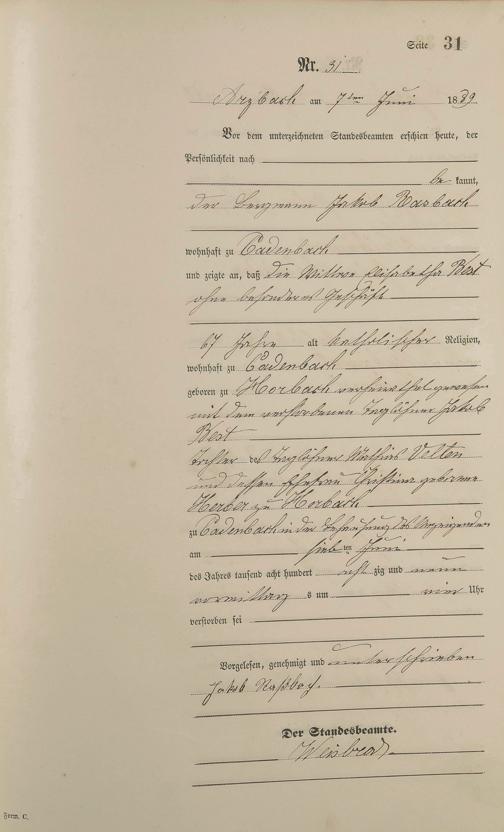 Seite 31
Nr. 31
Arzbach am 7ten Juni 1889
Vor dem unterzeichneten Standesbeamten erschien heute, der
Persönlichkeit nach
be kannt,
der Bergmann Jakob Rasbach
wohnhaft zu Cadenbach
und zeigte an, daß die Wittwe Elisabetha Best
ohne besonderes Geschäft
67 Jahre alt katholischer Religion,
wohnhaft zu Cadenbach
geboren zu Horbach verheirathet gewesen
mit dem verstorbenen Taglöhner Jakob
Best
Tochter des Taglöhners Mathias Velten
und dessen Ehefrau Christina geborene
Herber zu Horbach
zu Cadenbach in der Behausung des Anzeigenden
am sieb ten Juni
des Jahres tausend acht hundert acht zig und neun
vormittags um vier Uhr
verstorben sei
Vorgelesen, genehmigt und unterschrieben
Jakob Raßbach.
Der Standesbeamte.
Weisbrod
Form. C.